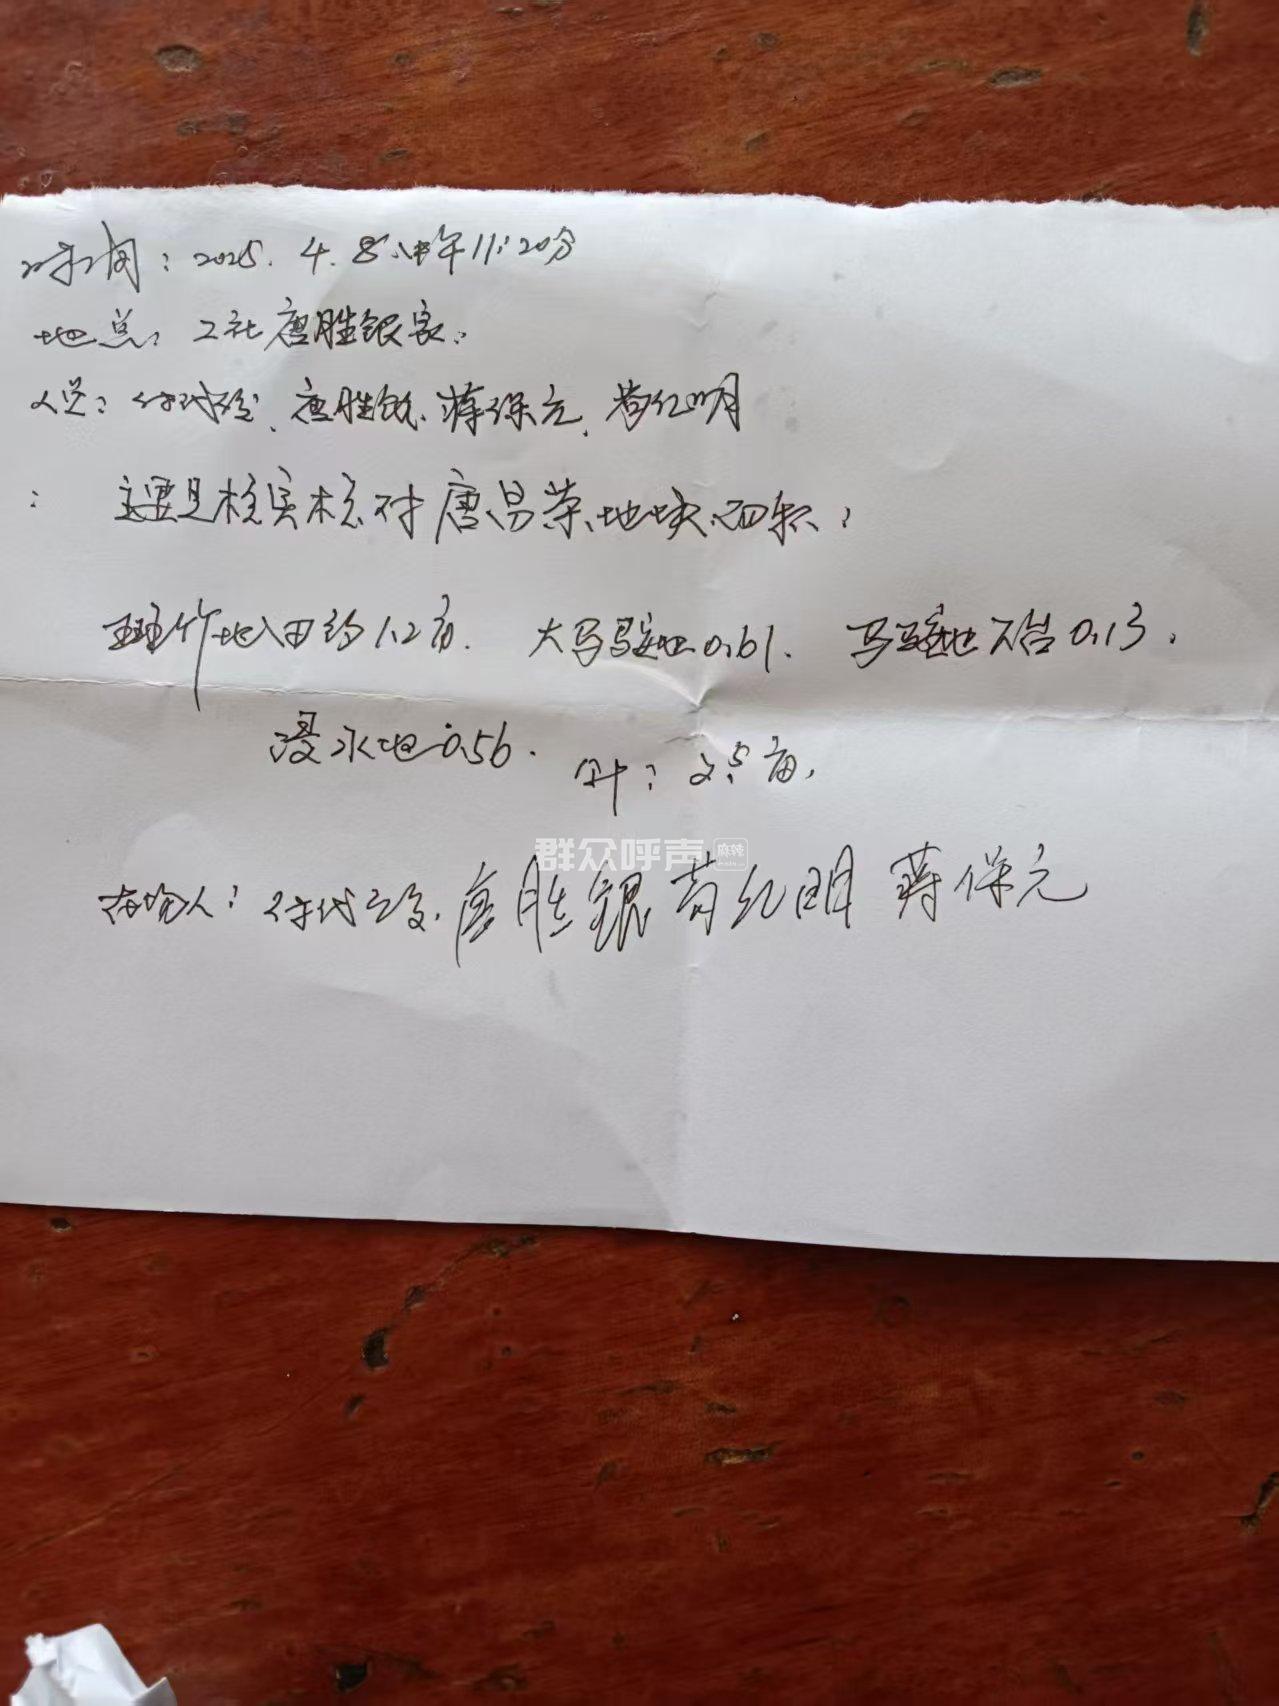 时间：2025.4.8 中午11:20分
地点：2社唐胜银家.
人员：唐胜银、蒋保元、苟红明
：主要是核实核对唐昌荣地块面积：
斑竹地入田约1.2亩. 大马马地0.61. 马马地0.13.
浸水地0.56.
计：2.5亩.
群众呼声 麻辣
在场人： 唐胜银 苟红明 蒋保元